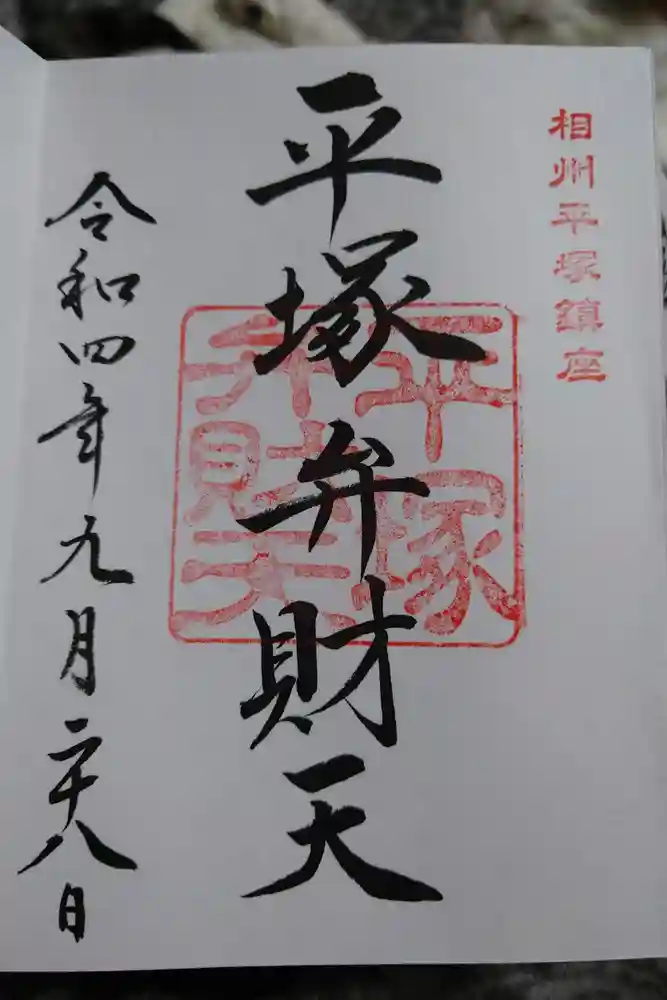 相州平塚鎮座
平塚弁財天
平塚
弁財天
令和四年九月二十八日